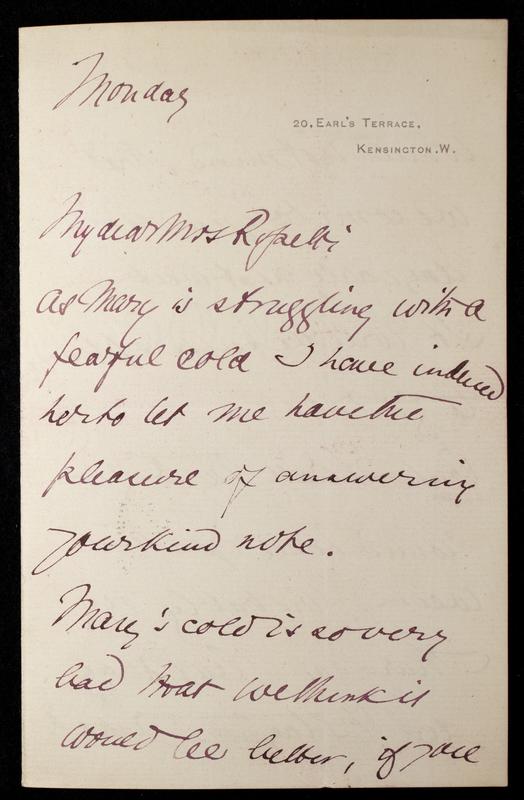 Monday
20, EARL'S TERRACE,
KENSINGTON. W.
My dear Mrs Rossetti
As Mary is struggling with a
fearful cold I have induced
her to let me have the
pleasure of answering
your kind note.
Mary's cold is so very
bad that we think it
would be better, if you